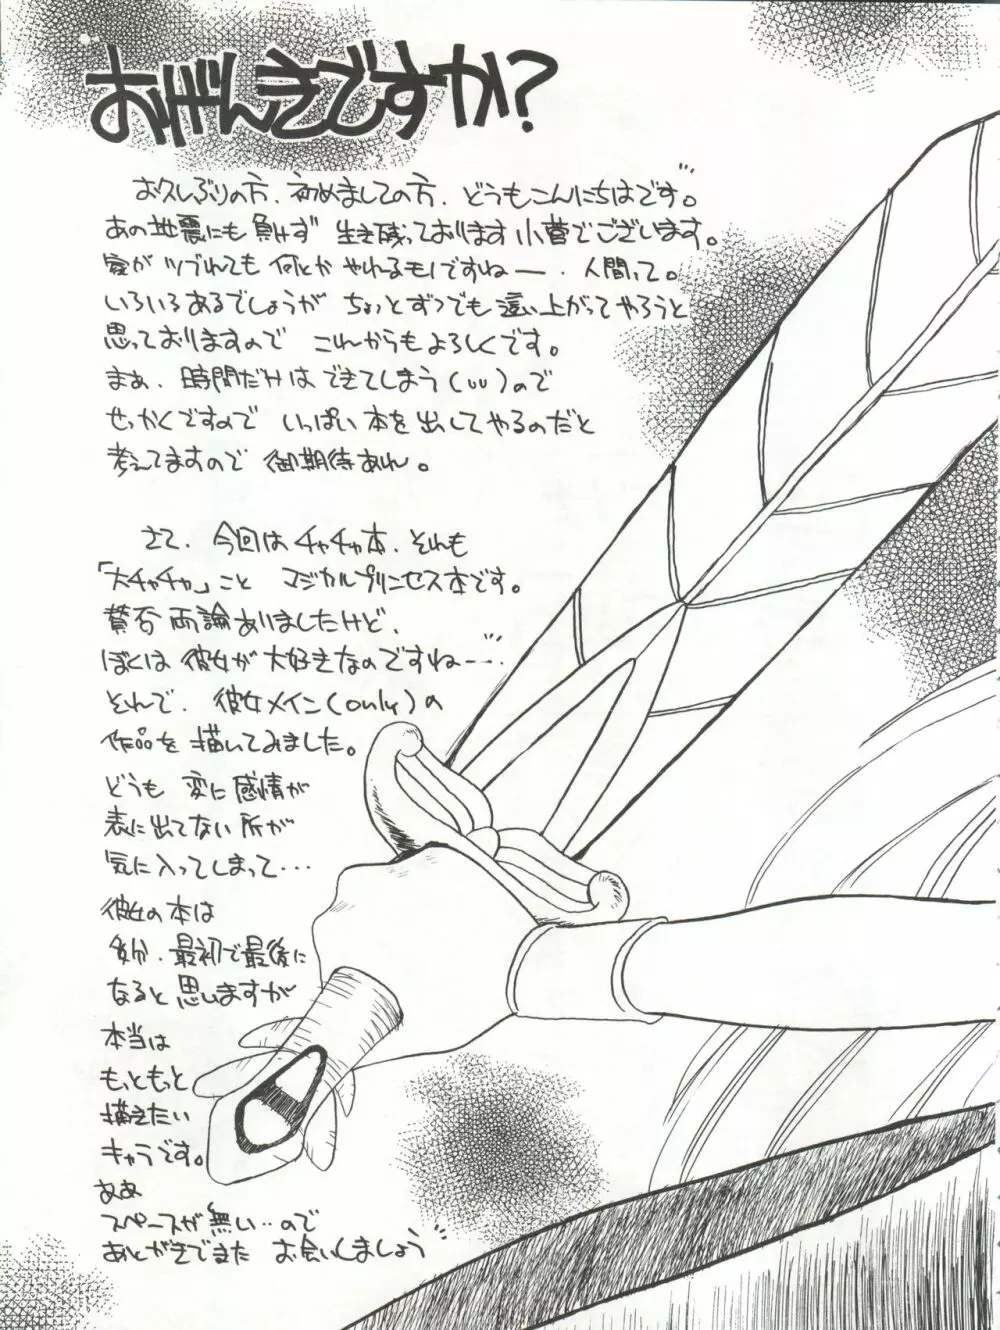 おげんきですか?
お久しぶりの方、初めましての方、どうもこんにちはです。
あの地震にも負けず 生き残っております小菅でございます。
家がツブれても 何とか やれるモノですねー、人間って。
いろいろあるでしょうが ちょっとずつでも這い上がってやろうと
思っておりますので これからもよろしくです。
まぁ、時間だけは できてしまう(UU)ので
せっかくですので いっぱい本を出してやるのだと
考えてますので 御期待あれ。
さて、今回は チャチャ本、それも
「大チャチャ」こと マジカルプリンセス本です。
賛否両論ありましたけど、
ぼくは 彼女が大好きなのですねー…
それで、彼女メイン(only)の
作品を 描いてみました。
どうも 変に感情が
表に出てない所が
気に入ってしまって…
彼女の本は
多分、最初で最後に
なると思いますが
本当は
もっともっと
描きたい
キャラです。
ああ
スペースが無い…ので
あとがきでまた お会いしましょう